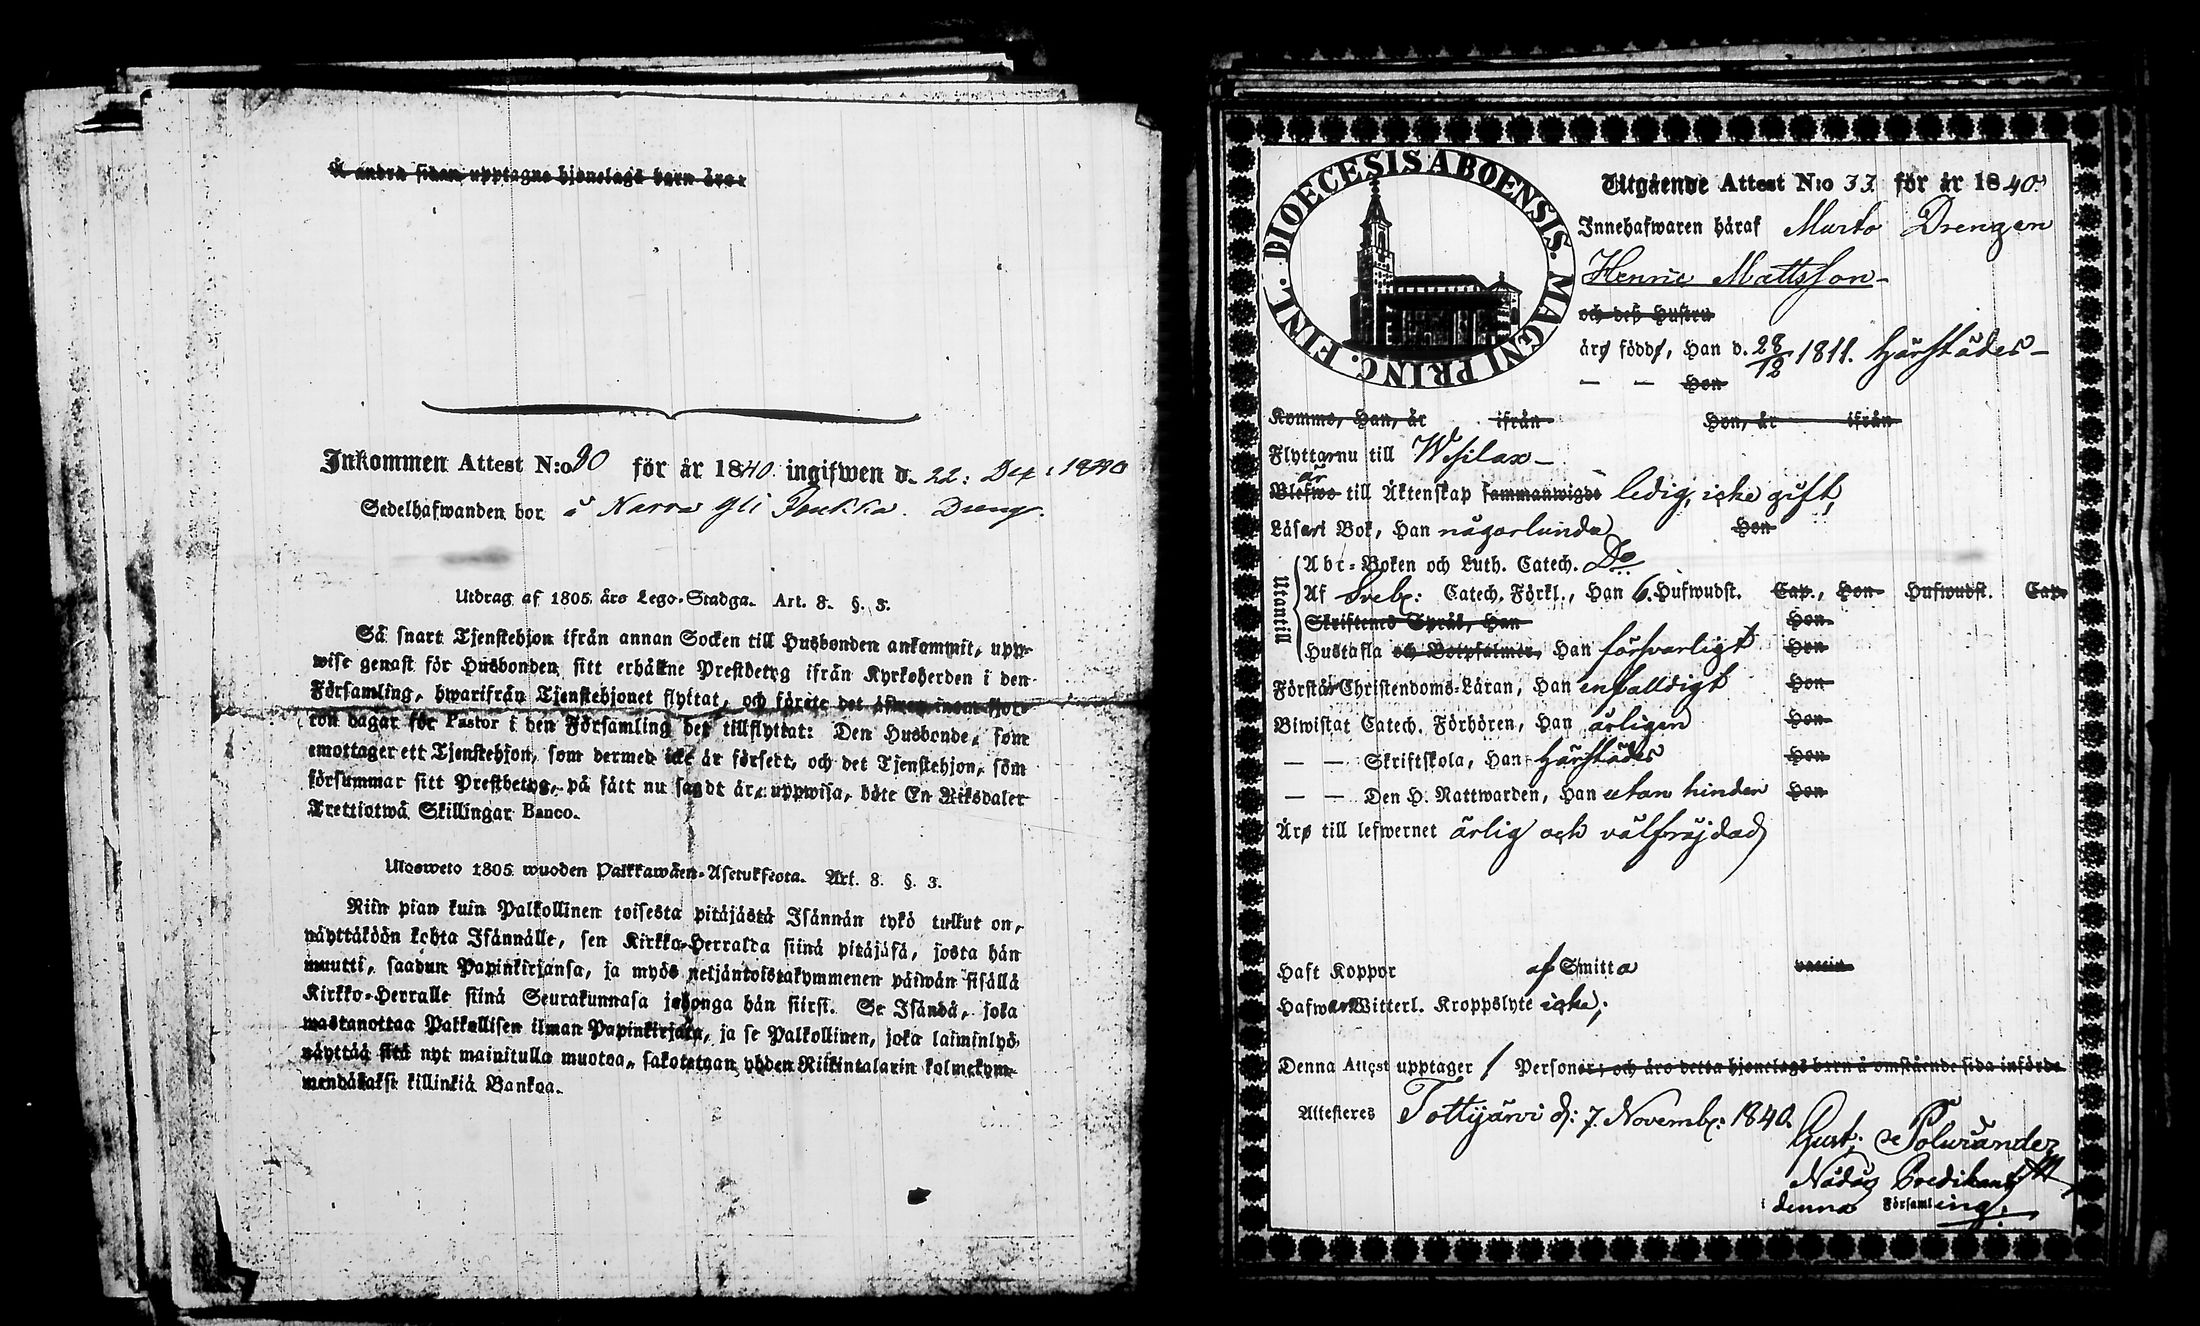 Å andra sidan upptagne hjonelags barn äro:
Inkommen Attest N:o 90 för år 1840 ingifwen d. 22: Dec: 1840
Sedelhafwanden bor å Narva Yli Jaukka. Dreng.
Utdrag af 1805 års Lego-Stadga. Art. 8. §. 3.
Så snart Tjenstehjon ifrån annan Socken till Husbonden ankommit, upp-
wise genast för Husbonden sitt erhållne Prestbetyg ifrån Kyrkoherden i den
Församling, hwarifrån Tjenstehjonet flyttat, och förete det äfwen inom fjor-
ton dagar för Pastor i den Församling det tillflyttat: Den Husbonde, som
emottager ett Tjenstehjon, som dermed icke är försedt, och det Tjenstehjon, som
försummar sitt Prestbetyg, på sätt nu sagdt är, uppwisa, böte En Riksdaler
Trettiotwå Skillingar Banco.
Ulosweto 1805 wuoden Palkkawäen-Asetuksesta. Art. 8. §. 3.
Niin pian kuin Palkollinen toisesta pitäjästä Isännän tykö tullut on,
näyttäköön kohta Isännälle, sen Kirkko-Herralda siinä pitäjäsä, josta hän
muutti, saadun Papinkirjansa, ja myös neljäntoistakymmenen päiwän sisällä
Kirkko-Herralle siinä Seurakunnasa johonga hän siirsi. Se Isändä, joka
wastanottaa Palkollisen ilman Papinkirjata, ja se Palkollinen, joka laiminlyö
näyttää sitä nyt mainitulla muotoa, sakotetaan yhden Riikintalarin kolmekym-
mendäkaksi killinkiä Bankoa.
DIOECESIS ABOENSIS. MAGNI PRINC. FINL.
Utgående Attest N:o 33 för år 1840.
Innehafwaren häraf Murto Drengen
Henric Mattsson
och deß Hustru
äro födde, Han d. 28/12 1811. härstädes
— — Hon
Kommo, Han, år ifrån Hon, år ifrån
Flyttar nu till Wesilax
är
Blefwo till Äktenskap sammanwigde ledig, icke gift,
Läser i Bok, Han någorlunda Hon
Utantill
Abc-Boken och Luth. Catech. Do
Af Sveb: Catech. Förkl., Han 6. Hufwudst. Cap., Hon Hufwudst. Cap.
Skriftenes Språk, Han Hon
Hustafla och Botpsalmer, Han försvarligt Hon
Förstår Christendoms-Läran, Han enfalldigt Hon
Biwistat Catech. Förhören, Han årligen Hon
— — Skriftskola, Han härstädes Hon
— — Den H. Nattwarden, Han utan hinder Hon
Äro till lefwernet ärlig och välfräjdad
Haft Koppor af Smitta vaccin
Hafwer Witterl. Kroppslyte icke;
Denna Attest upptager 1 Personer; och äro detta hjonelags barn å omstående sida införde
Attesteres Tottijärvi d: 7. Novemb: 1840.
Gust:
Nådåg Predikant
i denna Församling: